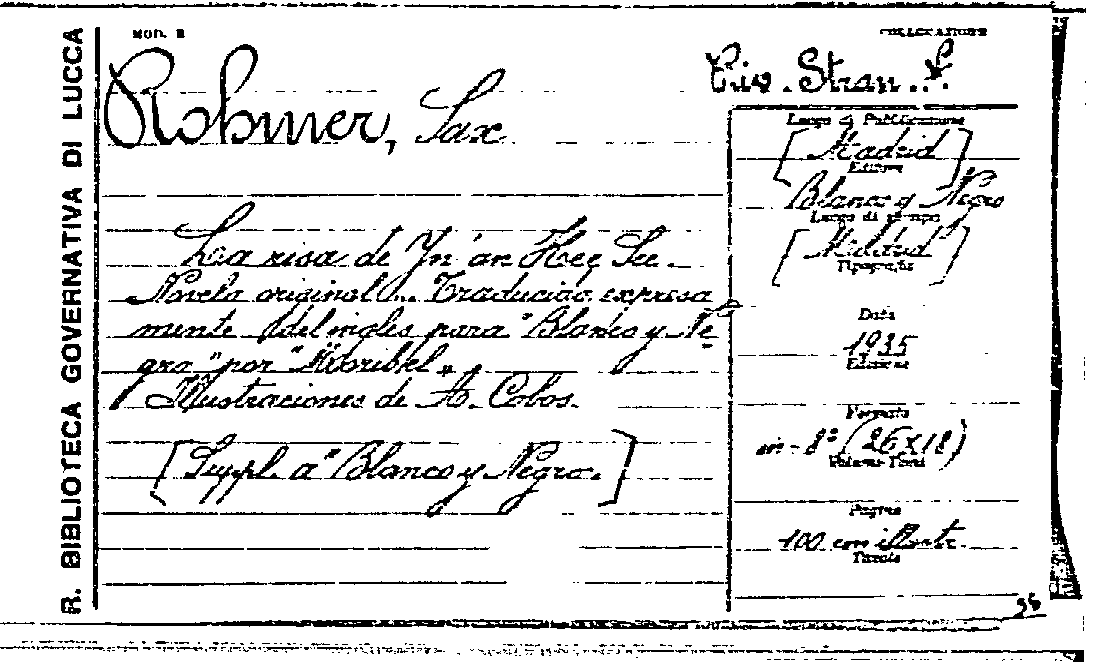 R. BIBLIOTECA GOVERNATIVA DI LUCCA
MOD. E
COLLOCAZIONE
Civ. Stran.
Rohmer, Sax
La risa de Yn'an Hee See.
Novela original... Traducida expresa
mente del ingles para "Blanco y Ne
gro" por
Illustraciones de A. Cobos.
[Suppl. a "Blanco y Negro.]
Luogo di Pubblicazione
[Madrid]
Editore
Blanco y Negro
Luogo di stampa
[Madrid]
Tipografia
Data
1935
Edizione
Formato
in-8° (26x18)
Volume-Tomi
Pagine
100 con
Tavole